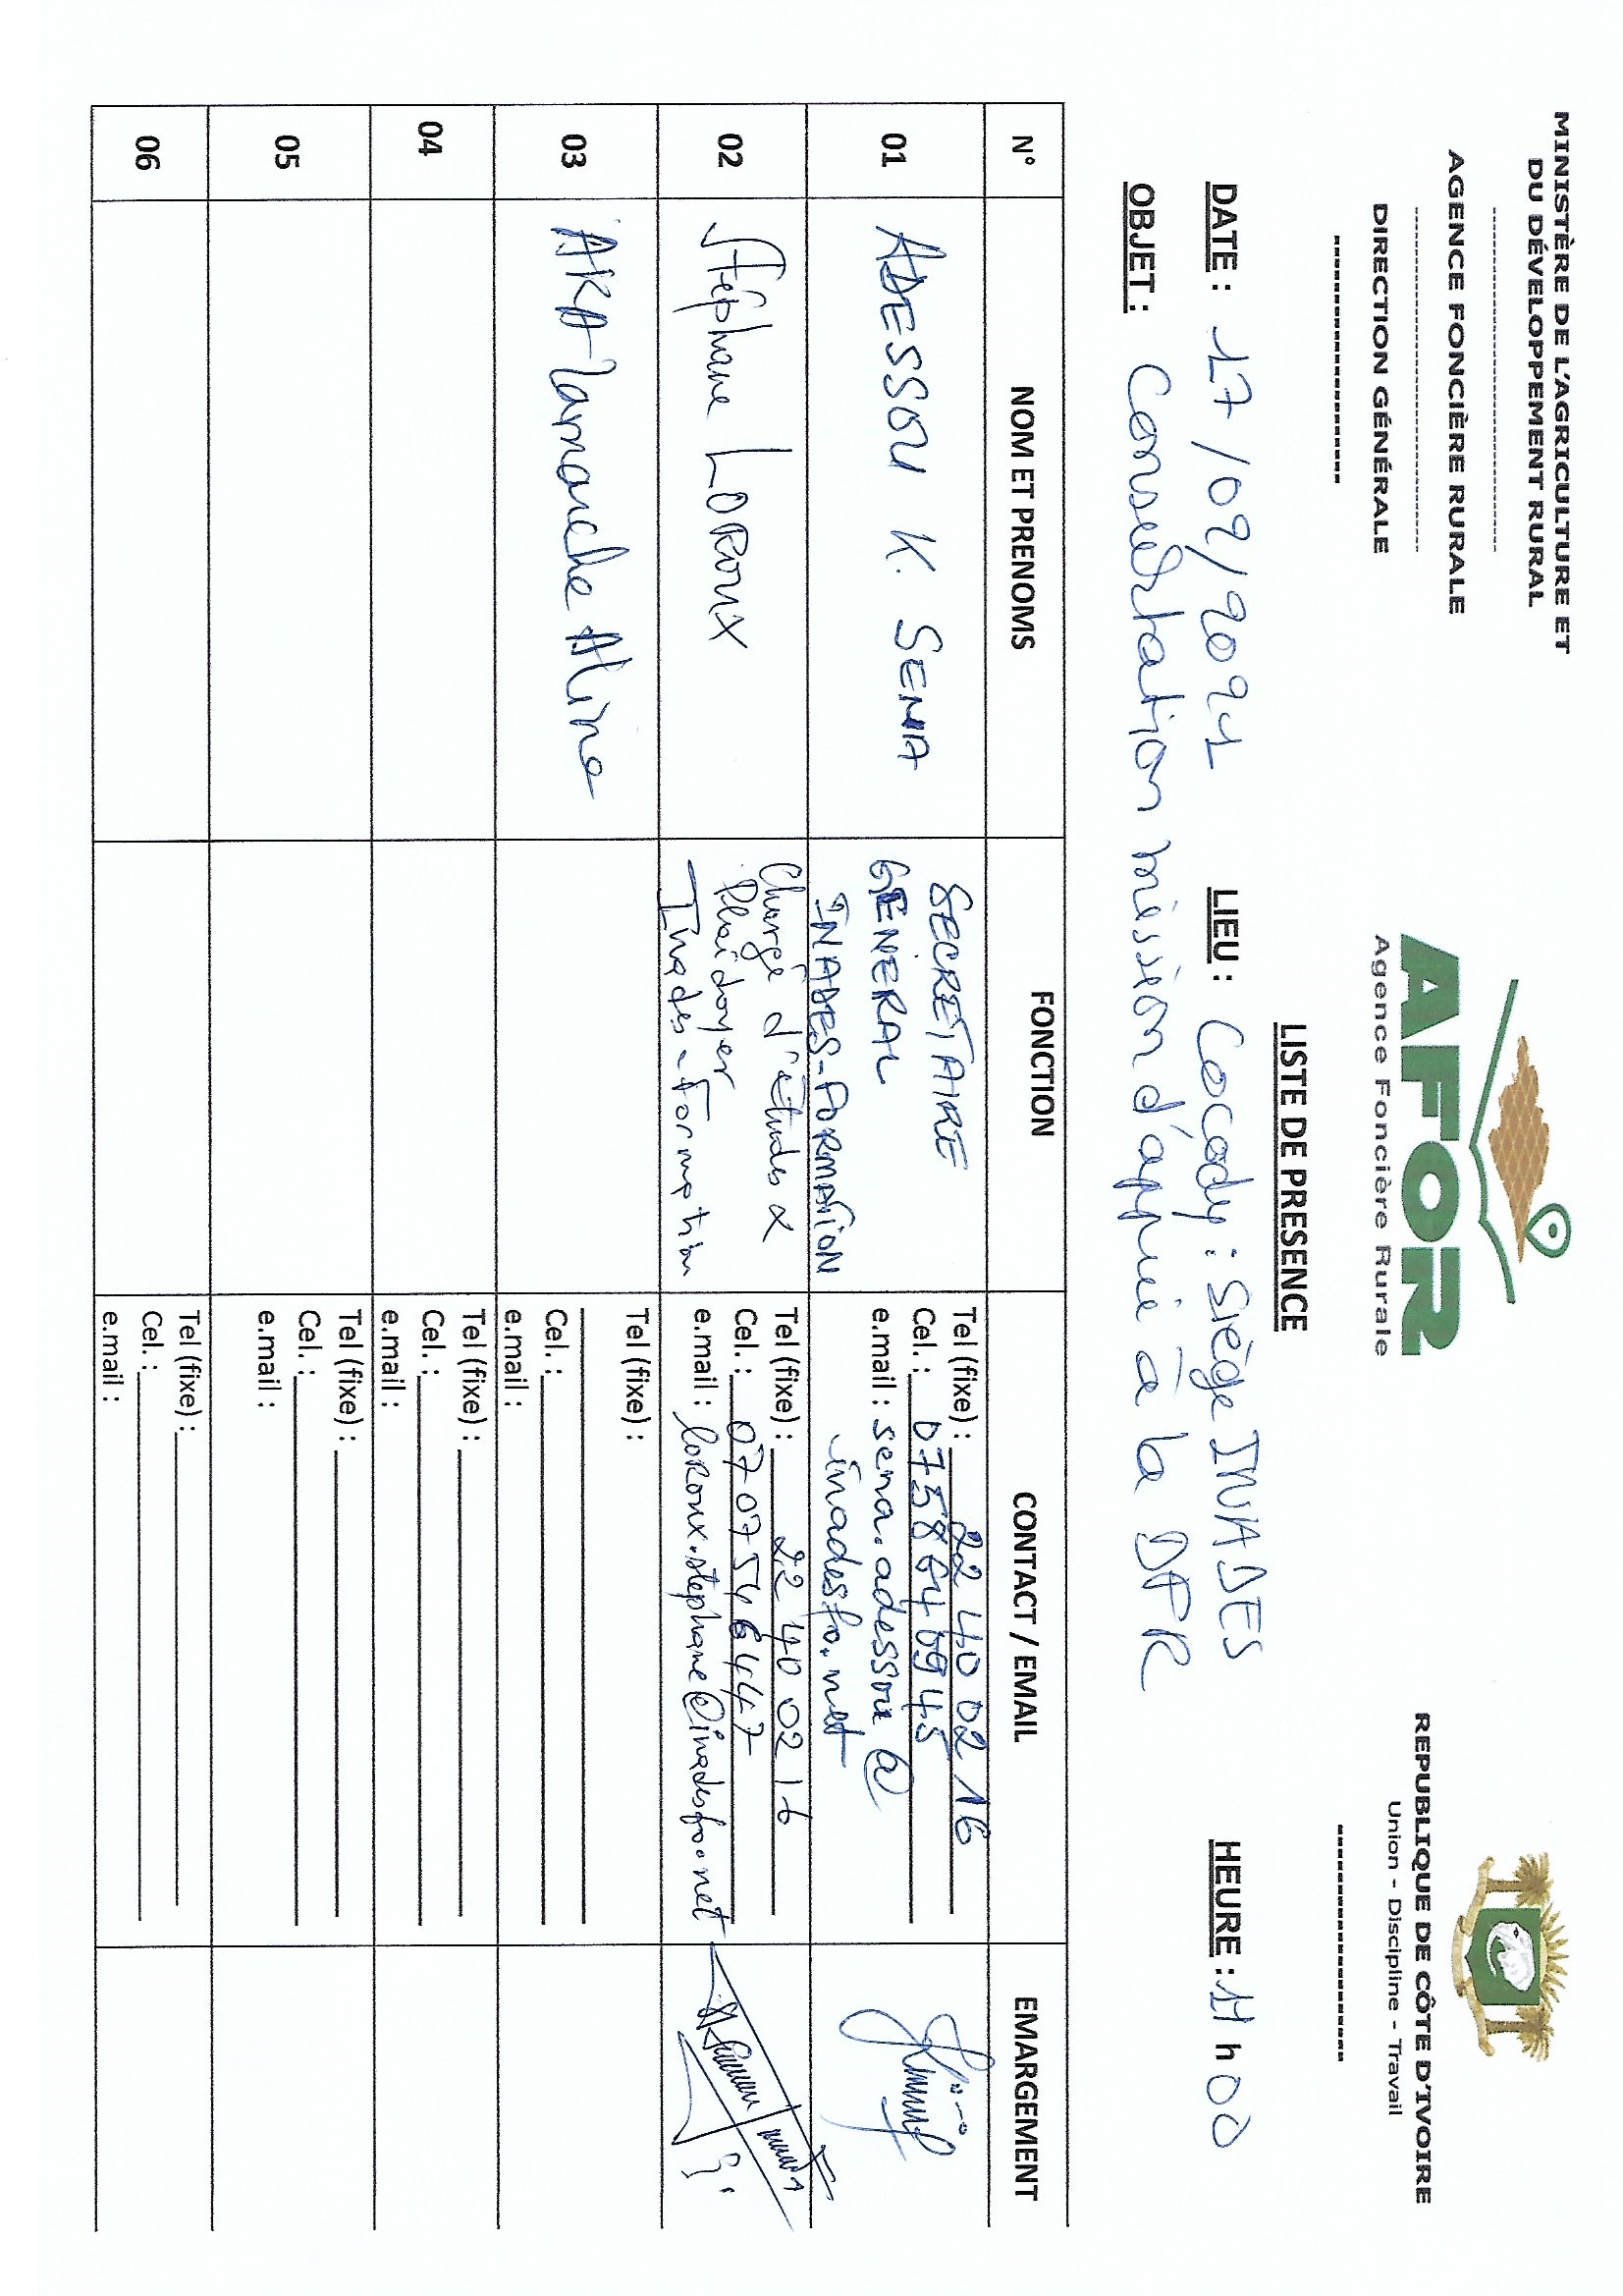 MINISTÈRE DE L'AGRICULTURE ET
DU DÉVELOPPEMENT RURAL
AGENCE FONCIÈRE RURALE
DIRECTION GÉNÉRALE
AFOR
Agence Foncière Rurale
REPUBLIQUE DE CÔTE D'IVOIRE
Union – Discipline – Travail
LISTE DE PRESENCE
DATE : 17/02/2021 LIEU : Cocody : Siège INADES HEURE : 11 h 00
OBJET : Consultation mission d'appui à la DFR
N° NOM ET PRENOMS FONCTION CONTACT / EMAIL EMARGEMENT
01 ADESSOU K. SENA
SECRETAIRE
GENERAL
INADES-FORMATION
Tel (fixe) : 22 40 02 16
Cel. : 0758646945
e.mail : sena.adessou@
inadesfo.net
02 Stéphane LOROUX
Chargé d'études &
Plaidoyer
Inades-Formation
Tel (fixe) : 22 40 02 16
Cel. : 0707546447
e.mail : loroux.stephane@inadesfo.net
03 AKA Lamarche Aline
Tel (fixe) :
Cel. :
e.mail :
04
Tel (fixe) :
Cel. :
e.mail :
05
Tel (fixe) :
Cel. :
e.mail :
06
Tel (fixe) :
Cel. :
e.mail :